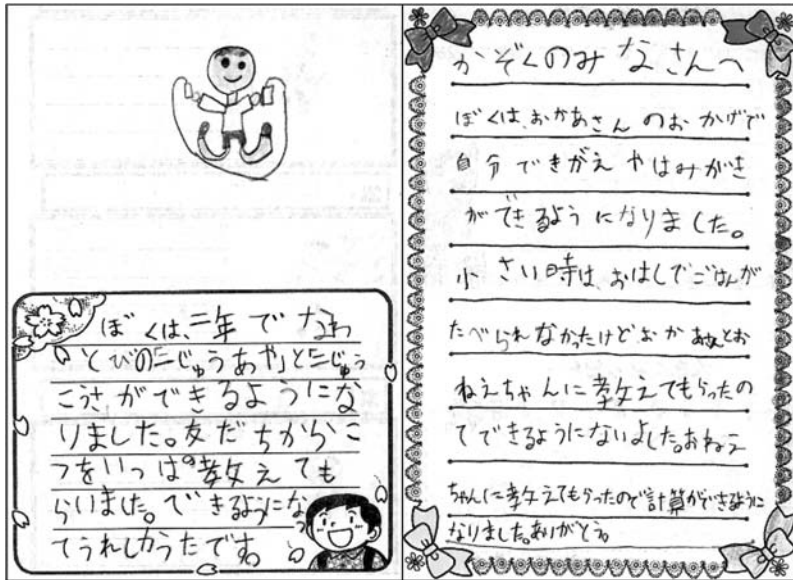 ぼくは、二年でなわ
とびの「二じゅうあや」と「二じゅう
こうさができるようにな
りました。友だちからこ
つをいっぱい教えても
らいました。できるようになっ
てうれしかったです。
かぞくのみなさんへ
ぼくは、おかあさんのおかげで
自分できがえやはみがき
ができるようになりました。
小さい時は、おはしでごはんが
たべられなかったけどおかあさんとお
ねえちゃんに教えてもらったの
でできるようになりました。おねえ
ちゃんに教えてもらったので計算ができるように
なりました。ありがとう。